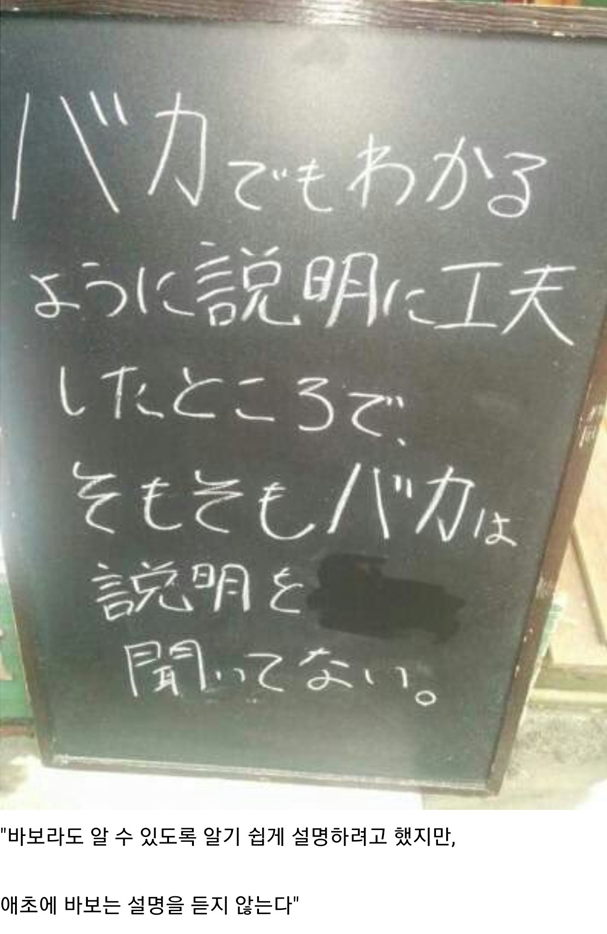 バカでもわかる
ように説明に工夫
したところで、
そもそもバカは
説明を
聞いてない。
"바보라도 알 수 있도록 알기 쉽게 설명하려고 했지만,
애초에 바보는 설명을 듣지 않는다"